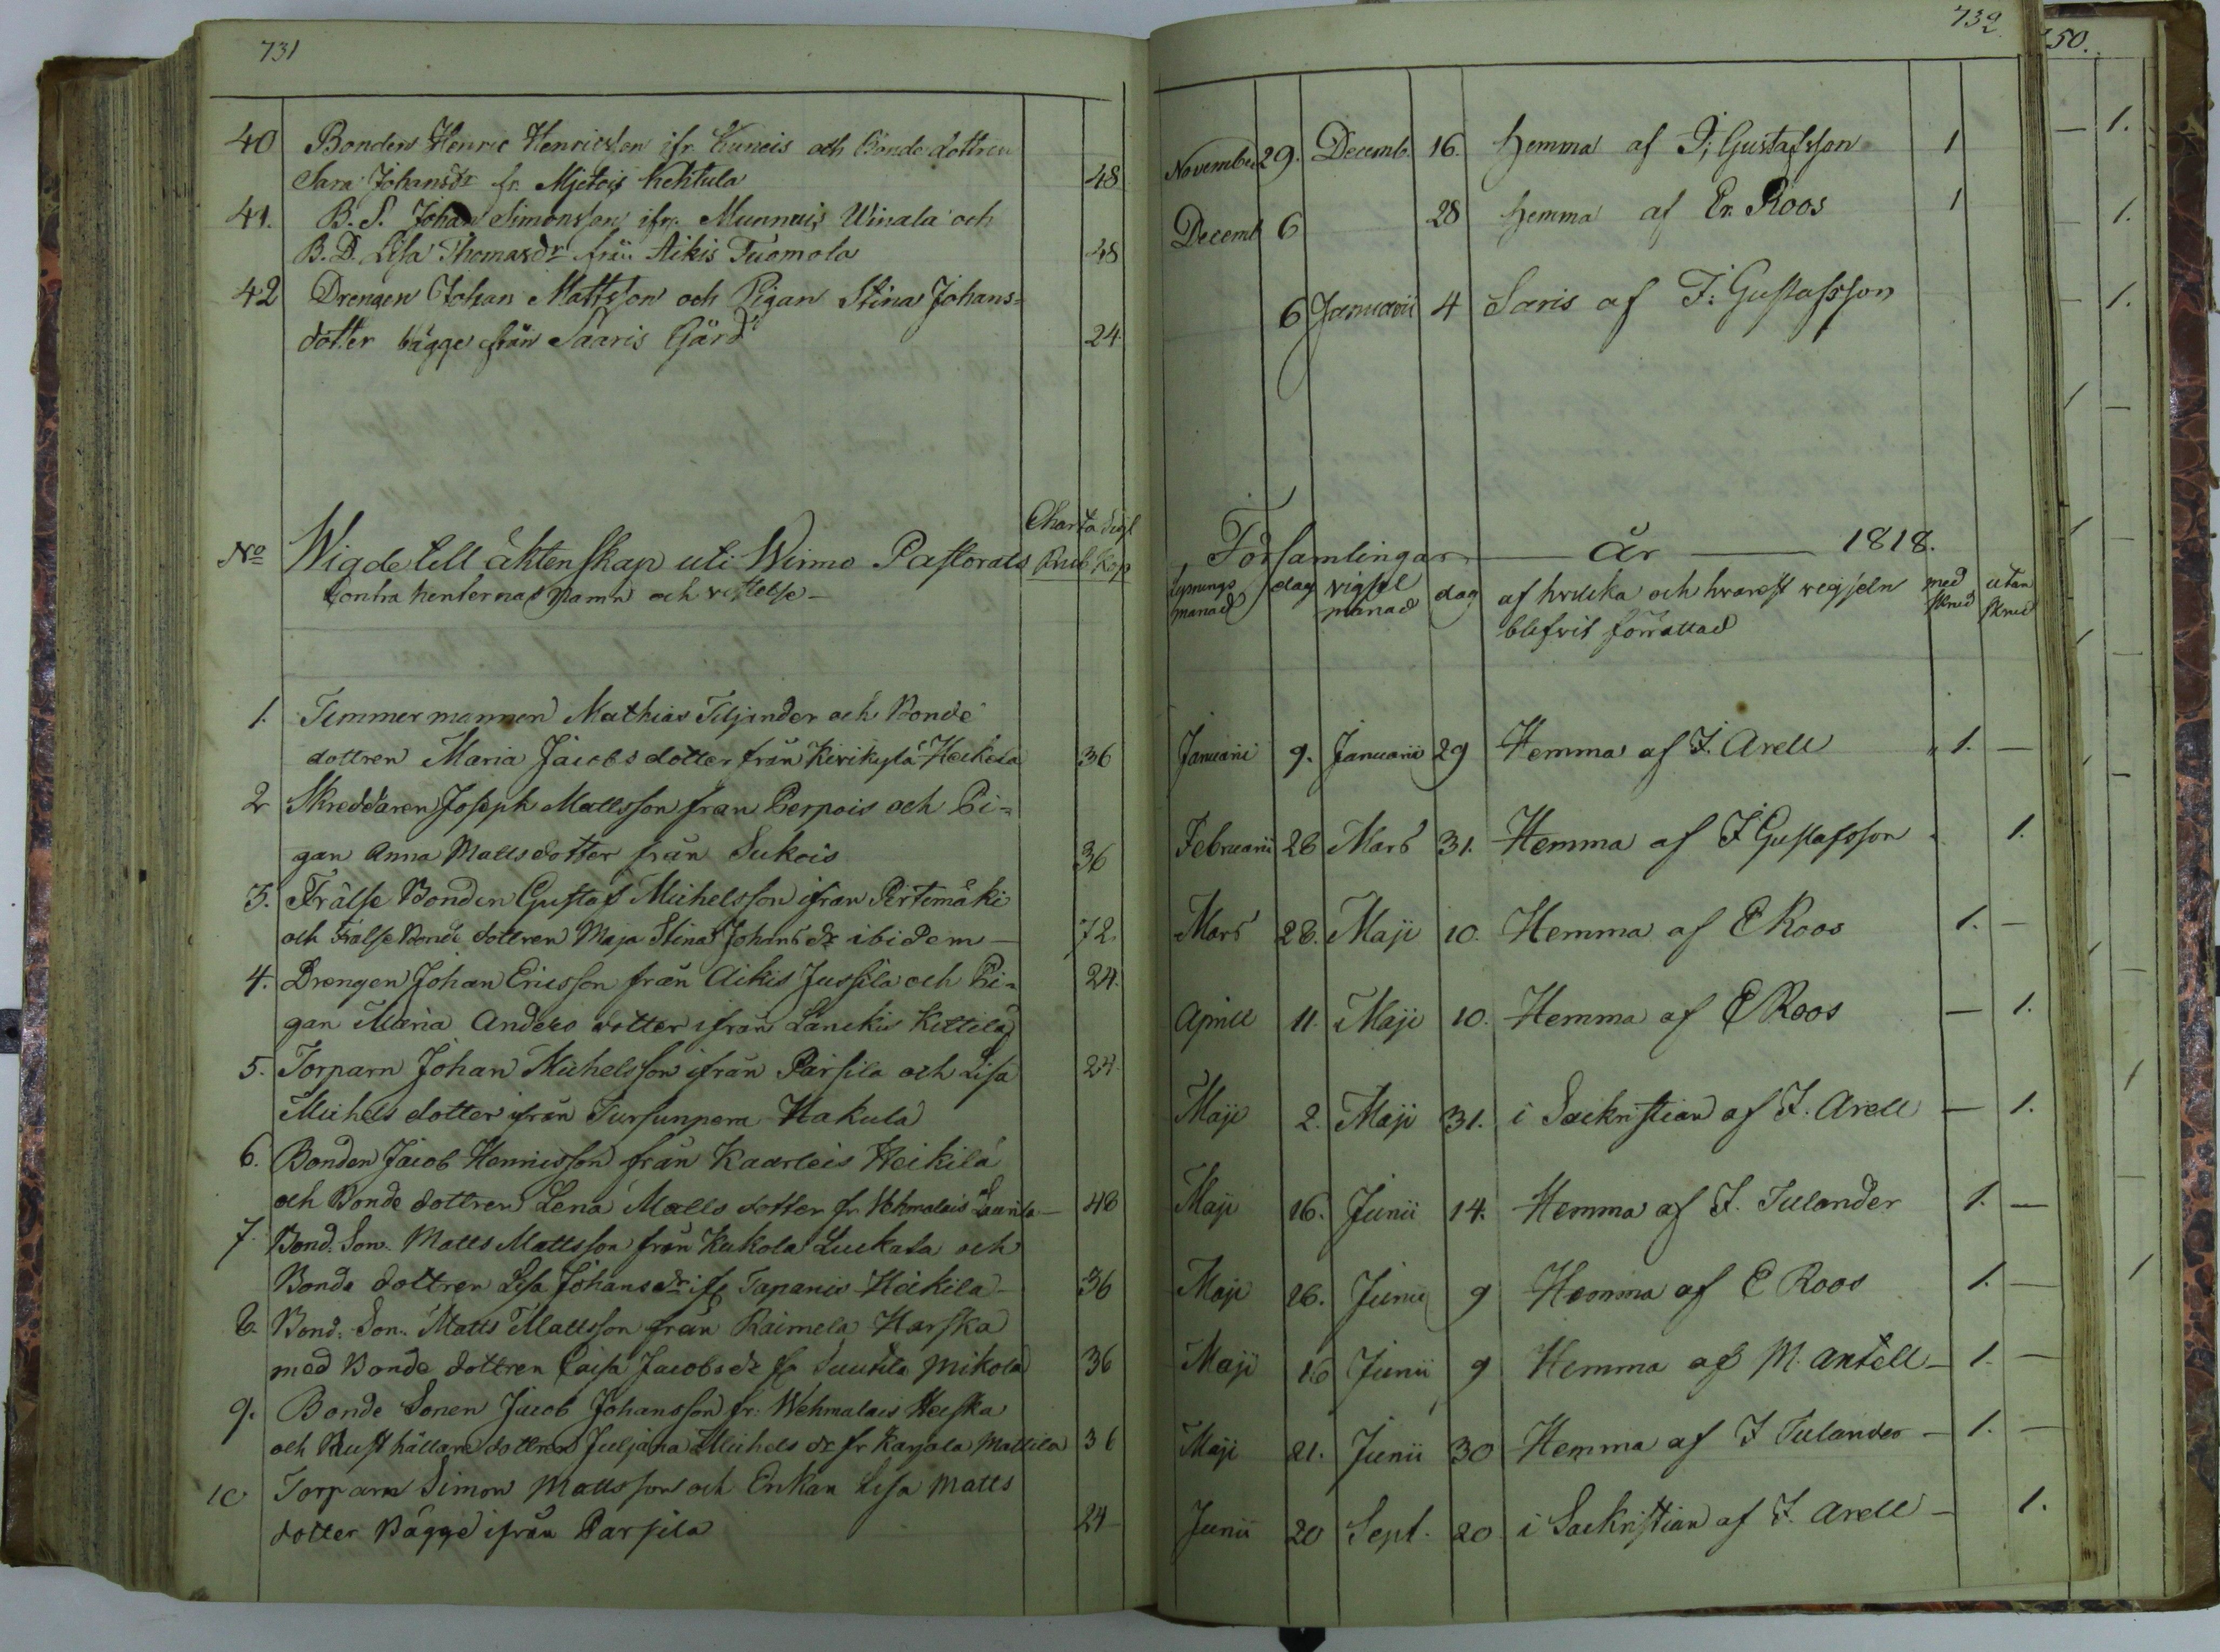 731
40 Bonden Henric Henricsson ifr. Cuneis och Bonde dottren
Sara Johansdr fr. Mjetois Kehtula 48
41. B. S. Johan Simonsson ifr. Munnais Winala och
B. D. Lisa Thomasdr från Aikis Tuomola 48
42 Drengen Johan Mattsson och Pigan Stina Johans=
dotter bägge från Saaris Gård 24
No Wigde till äktenskap uti Wirmo Pastorats
Charta Sigl
Rub Kop
Contrahenternas namn och vistelse
1. Timmermannen Mathias Tiljander och Bonde
dottren Maria Jacobs dotter från Kirikylä Heikola 36
2 Skreddaren Joseph Mattsson från Perpois och Pi=
gan Anna Matts dotter från Sukois 36
3. Frälse Bonden Gustaf Michelsson ifrån Pirtimäki
och Frälse Bonde dottren Maja Stina Johans dr ibidem 72
4. Drengen Johan Ericsson från Aikis Jussila och Pi=
gan Maria Anders dotter ifrån Lanckis Kettilä 24.
5. Torparn Johan Michelsson ifrån Parsila och Lisa 24
Michels dotter ifrån Tursunpera Hakula
6. Bonden Jacob Henricsson från Kaarleis Heikilä
och Bonde dottren Lena Matts dotter fr. Vehmalais Launla 48
7. Bond. Son. Matts Mattsson från Kukola Luckala och
Bonde dottren Lisa Johans dr ifr Tapanis Heikila 36
8. Bond. Son. Matts Mattsson från Raimela Harska
med Bonde dottren Caisa Jacobs dr fr Suutila Mikola 36
9. Bonde Sonen Jacob Johansson fr. Wehmalais Heiska
och Rusthållare dottren Juljana Michels dr fr Karjala Mattila 36
10 Torparn Simon Mattsson och Enkan Lisa Matts
dotter Bägge ifrån Parsila 24
732
November 29. Decemb. 16. hemma af J. Gustafsson 1
Decemb 6 28 hemma af Er. Roos 1
6 Januarii 4 Saris af J. Gustafsson
Församlingar år 1818.
Lysnings månad dag vigsel månad dag af hvilka och hvarest vigseln med skrud utan skrud
blifvit förrättad
Januarii 9. Januarii 29 Hemma af J. Arell 1. —
Februarii 28 Mars 31. Hemma af J Gustafsson 1.
Mars 28. Maji 10. Hemma af E Roos 1. —
Aprill 11. Maji 10. Hemma af E Roos — 1.
Maji 2. Maji 31. i Sackristian af J. Arell — 1.
Maji 16. Junii 14. Hemma af J. Tulander 1. —
Maji 26. Junii 9 Hemma af E Roos 1. —
Maji 16 Junii 9 Hemma af M. Antell 1. —
Maji 21. Junii 30 Hemma af J Tulander 1. —
Junii 20 Sept. 20 i Sackristian af J. Arell — 1.
50.
1.
1.
1.